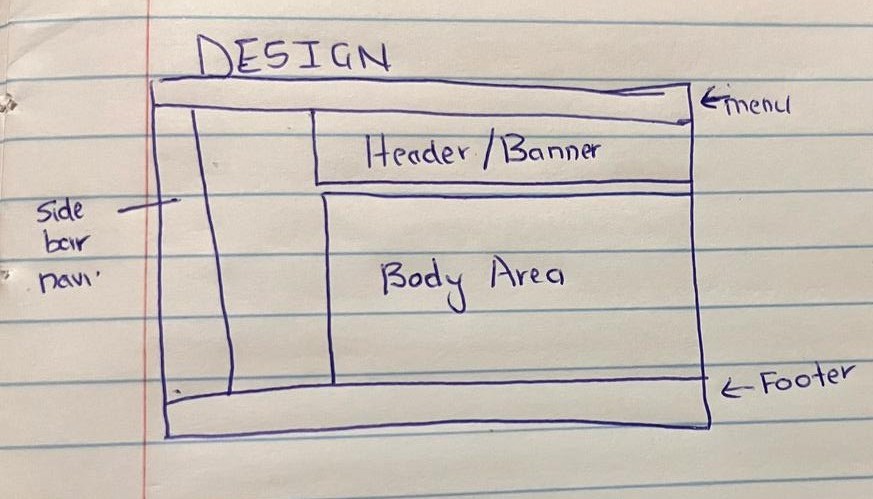 DESIGN
←menu
Header/Banner
Side
bar
navi.
Body Area
← Footer